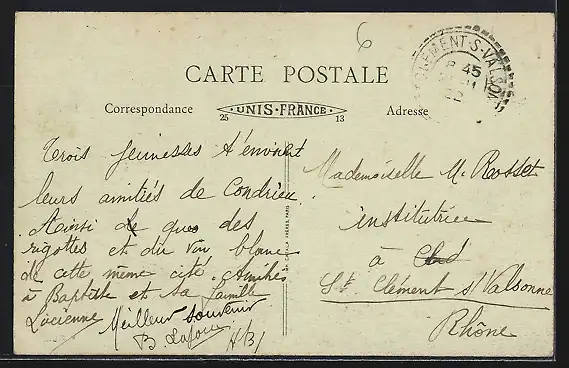 6
CLEMENT-S-VALSON
45
CARTE POSTALE
Correspondance
UNIS-FRANCE
25 13
Adresse
Trois jeunesses t'envoient
leurs amitiés de Condrieu
Ainsi que des
rigottes et du vin blanc
de cette même cité. Amitiés
à Baptiste et sa famille
Lucienne
Meilleur souvenir
B.
Mademoiselle M. Rosset
institutrice
à
St Clément s/Valsonne
Rhône